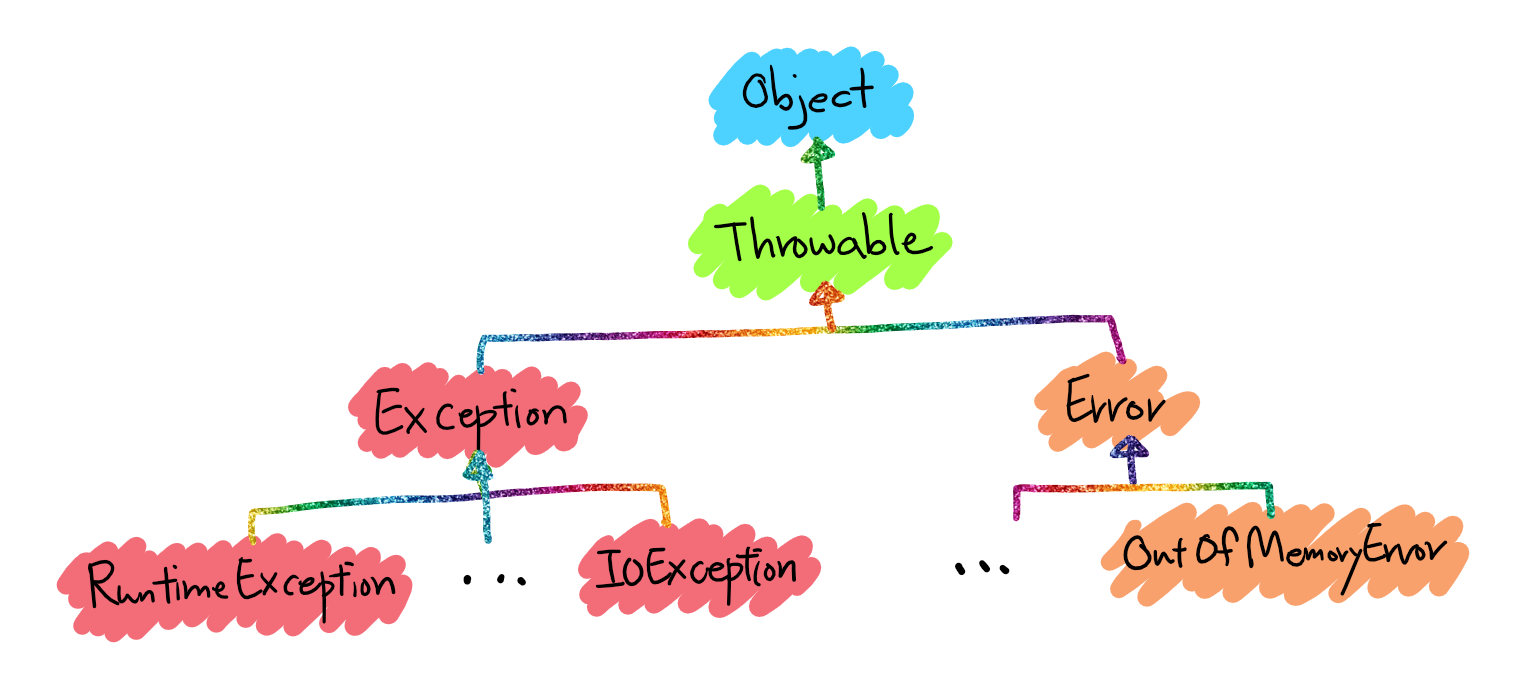 Object
Throwable
Exception
Error
RuntimeException
...
IOException
...
OutOfMemoryError